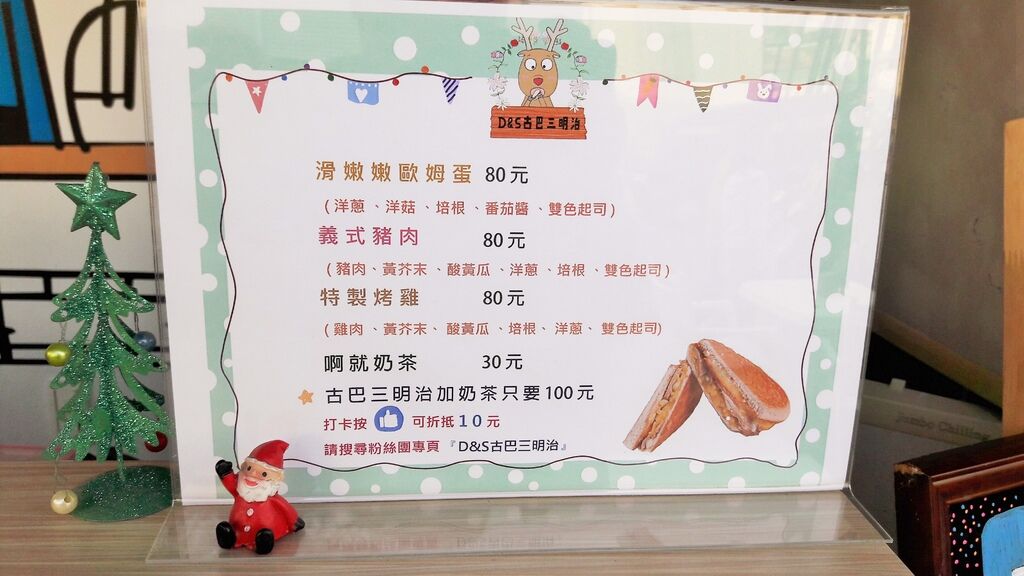 D&S古巴三明治
滑嫩嫩歐姆蛋 80元
(洋蔥、洋菇、培根、番茄醬、雙色起司)
義式豬肉 80元
(豬肉、黃芥末、酸黃瓜、洋蔥、培根、雙色起司)
特製烤雞 80元
(雞肉、黃芥末、酸黃瓜、培根、洋蔥、雙色起司)
啊就奶茶 30元
古巴三明治加奶茶只要100元
打卡按 可折抵10元
請搜尋粉絲團專頁『D&S古巴三明治』